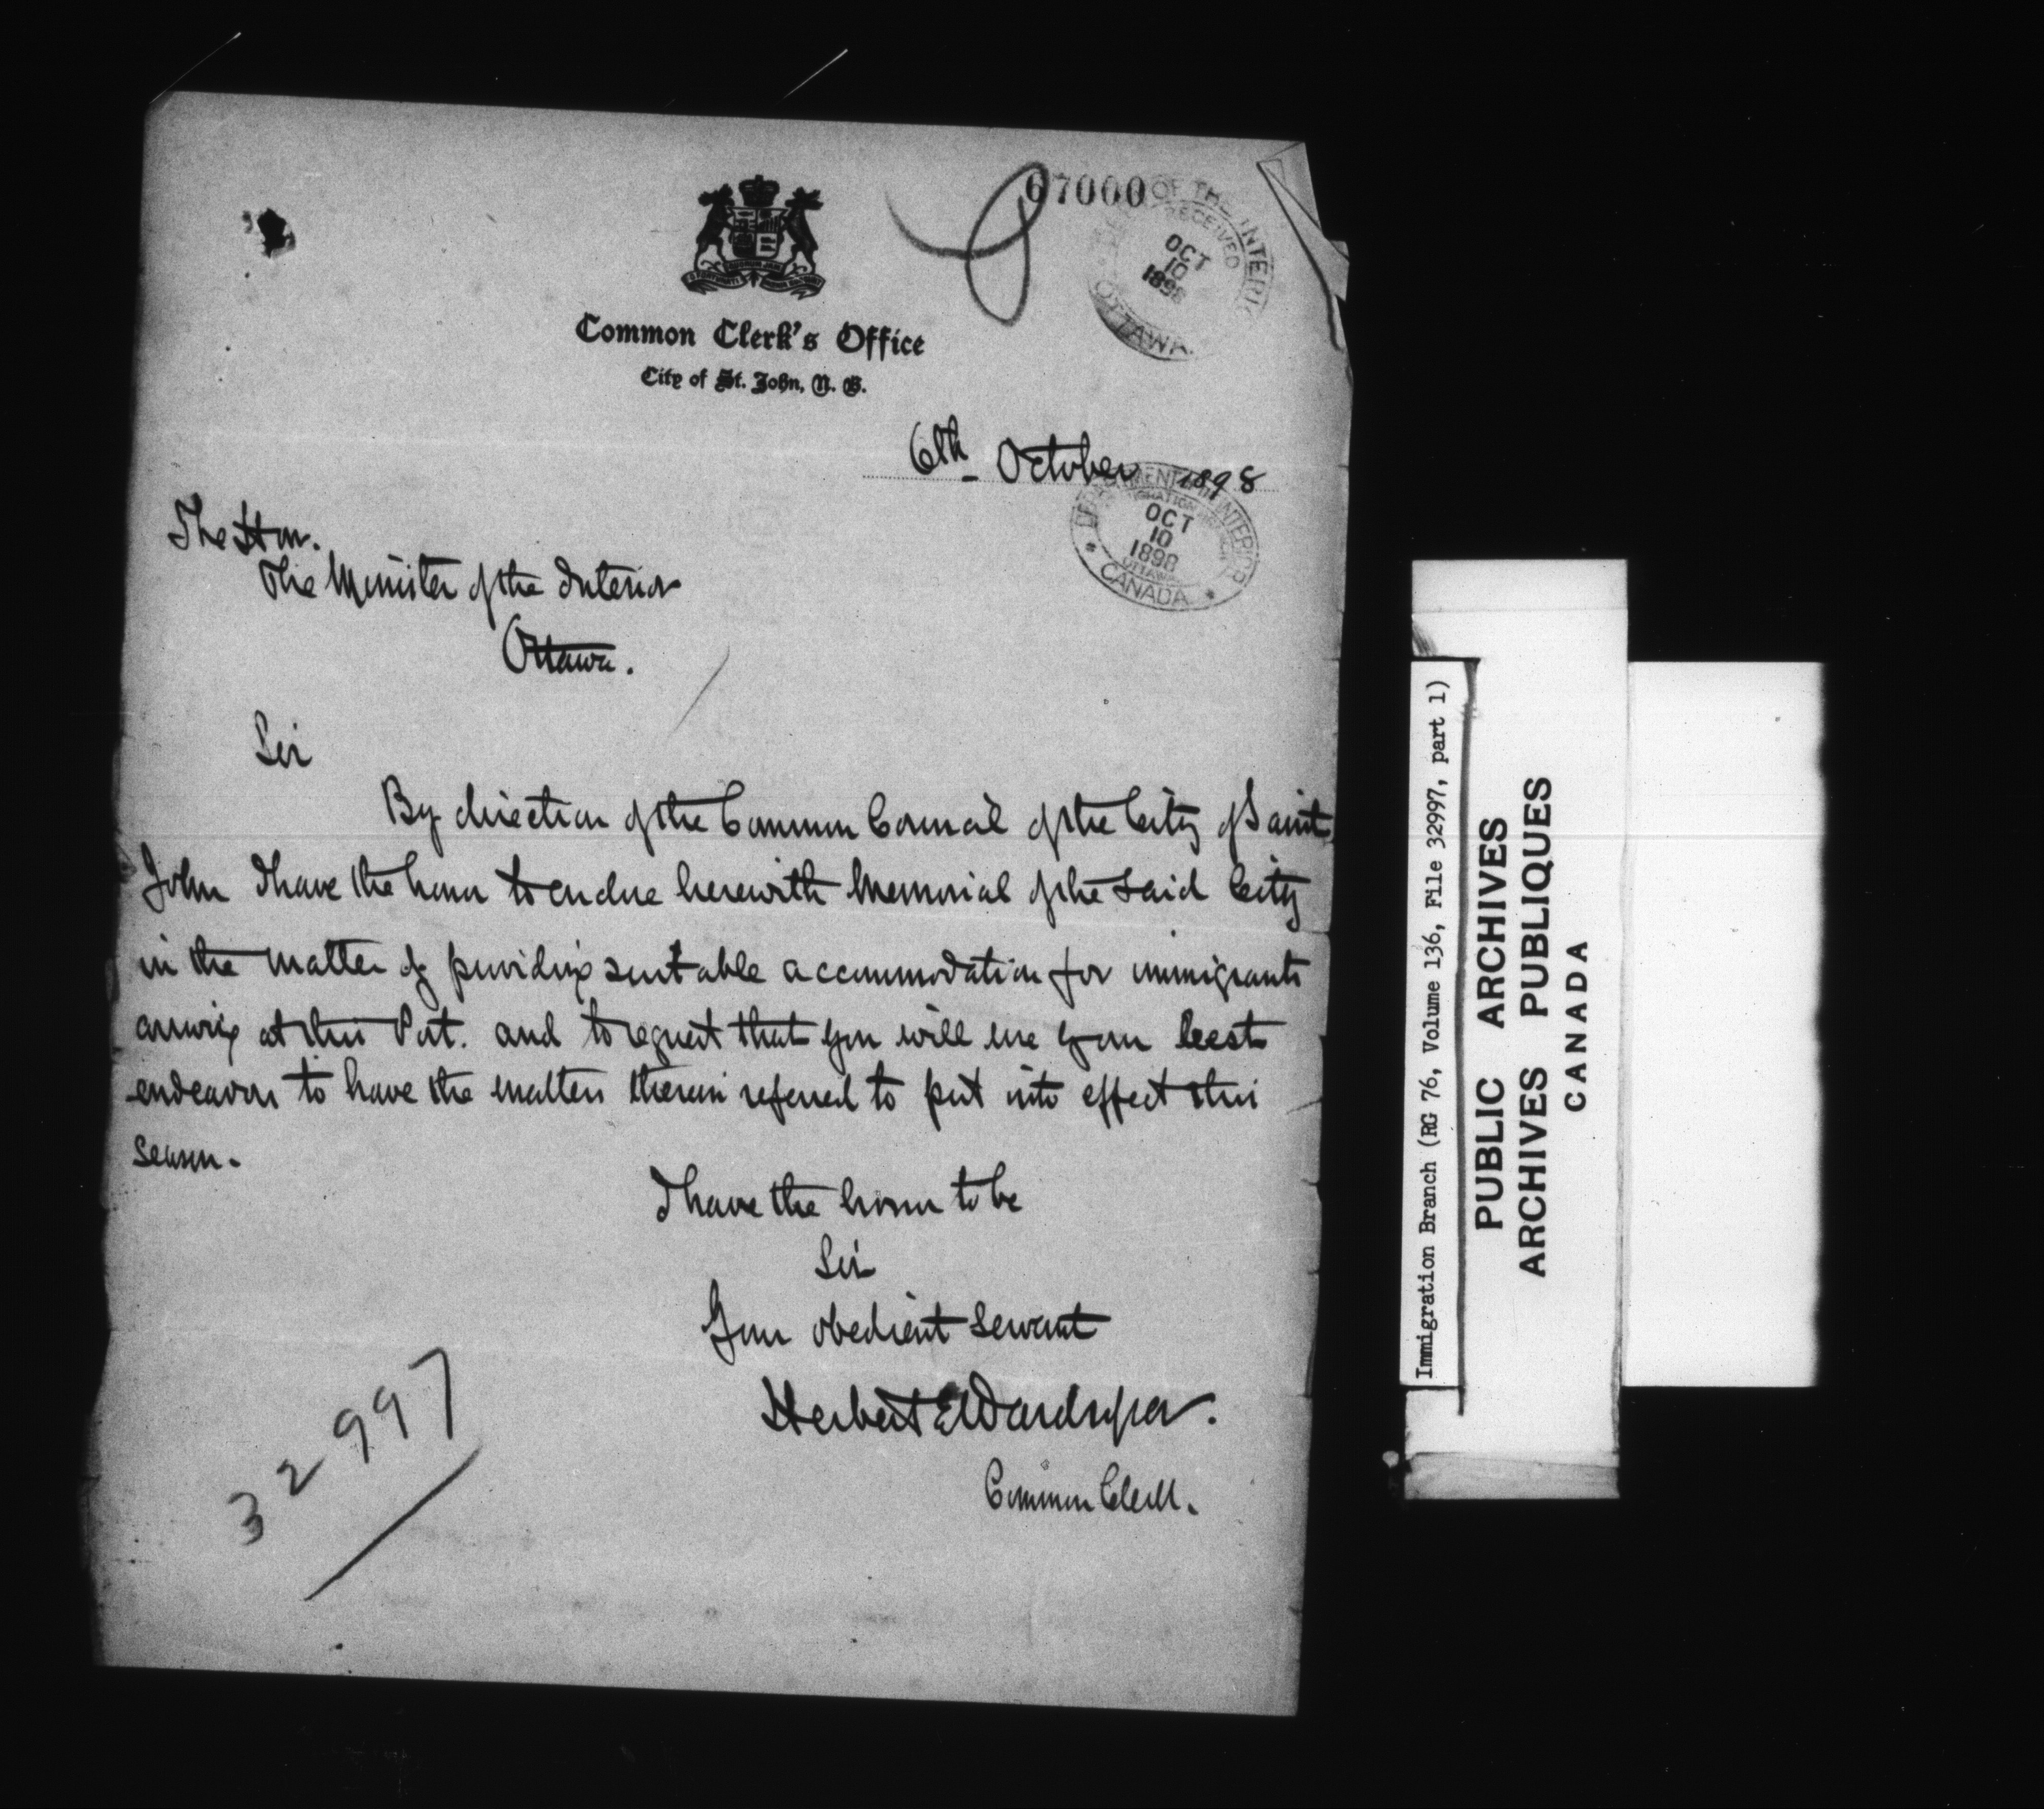 67000
DEPT OF THE INTERIOR
RECEIVED
OCT
10
1898
OTTAWA.
Common Clerk's Office
City of St. John, N. B.
6th October 1898
DEPARTMENT OF THE INTERIOR
IMMIGRATION BRANCH
OCT
10
1898
OTTAWA
* CANADA *
The Hon.
The Minister of the Interior
Ottawa.
Sir
By direction of the Common Council of the City of Saint
John I have the honor to enclose herewith Memorial of the said City
in the matter of providing suitable accommodation for immigrants
arriving at this Port. and to request that you will use your best
endeavors to have the matters therein referred to put into effect this
season.
I have the honor to be
Sir
Your obedient servant
Herbert E Wardroper.
Common Clerk.
32997
Immigration Branch (RG 76, Volume 136, File 32997, part 1)
PUBLIC ARCHIVES
ARCHIVES PUBLIQUES
CANADA